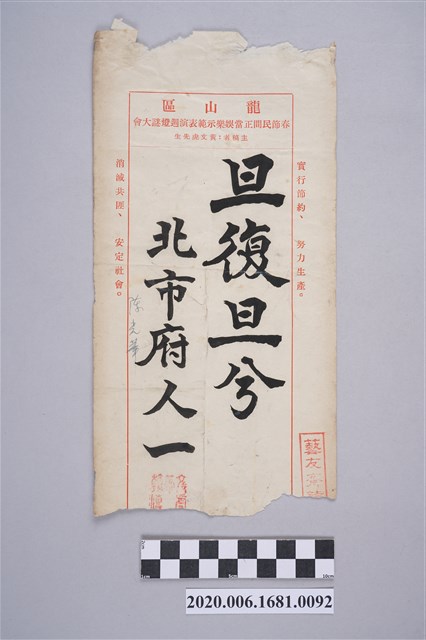 龍山區
春節民間正當娛樂示範表演週燈謎大會
黃文虎先生
實行節約、 努力生產。
旦復旦兮
北市府人一
消滅共匪、 安定社會。
陳
藝友
2020.006.1681.0092
1cm 5cm 10cm